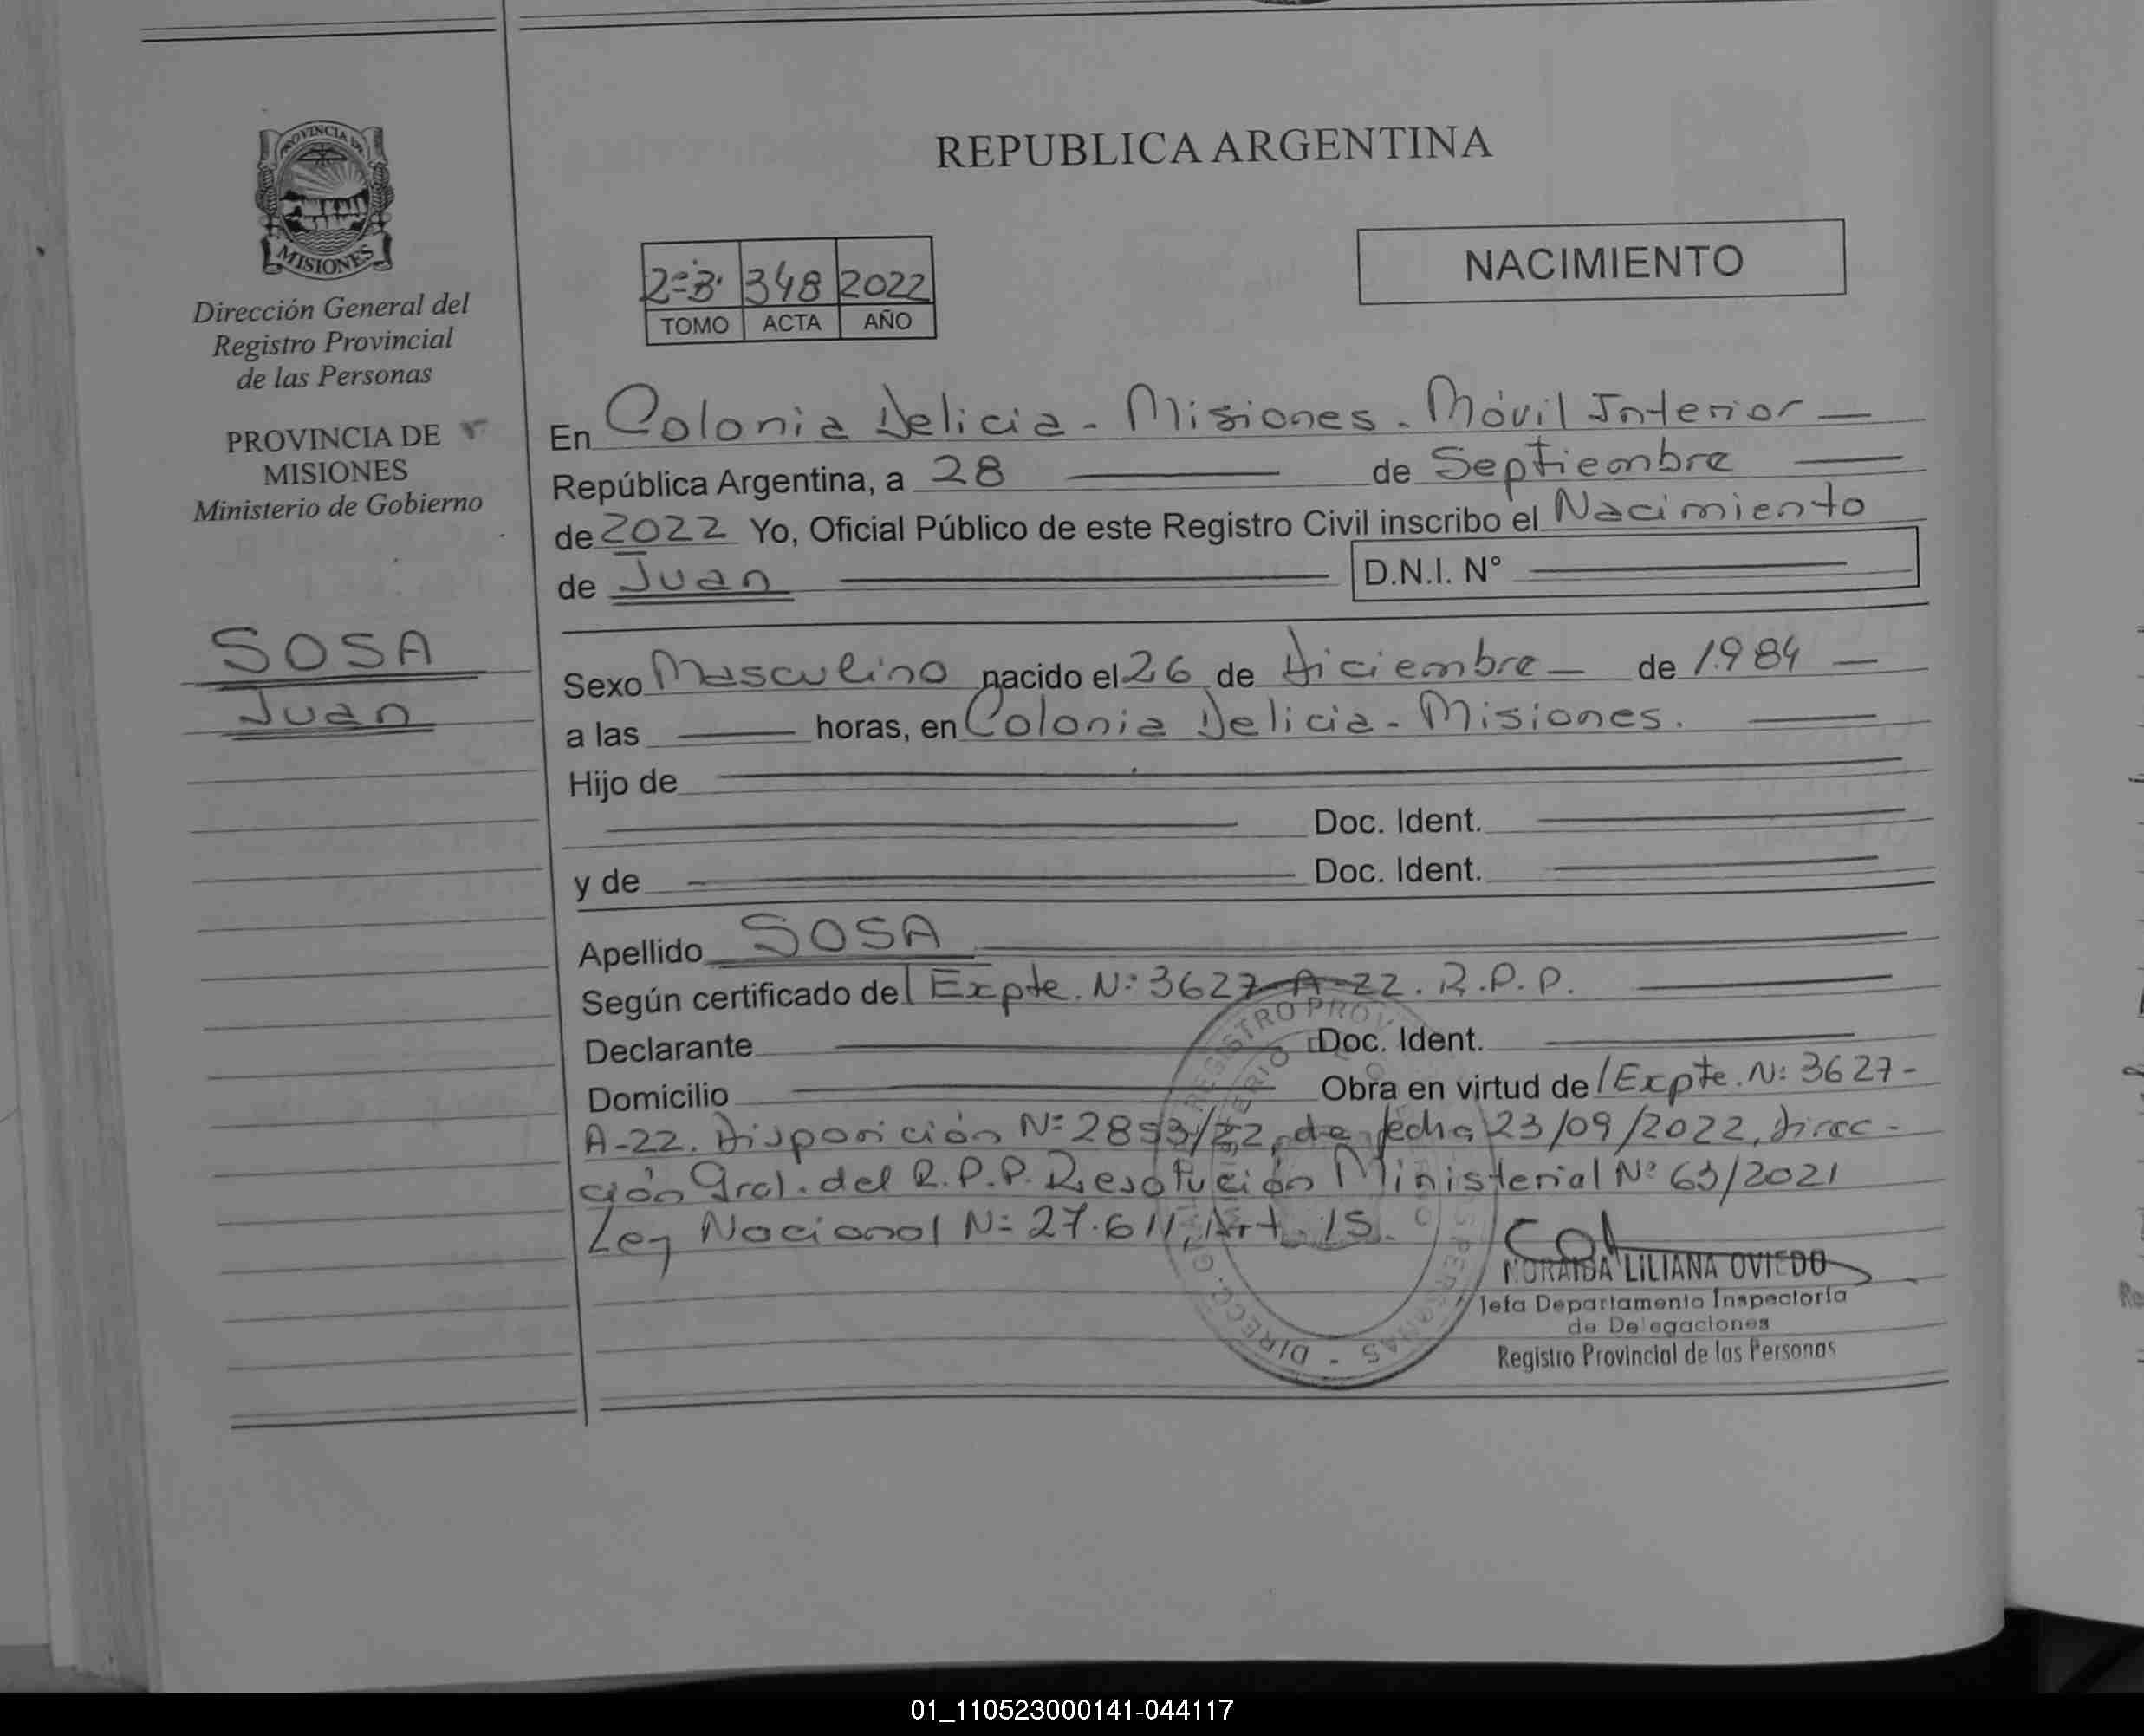 PROVINCIA DE
MISIONES
Dirección General del
Registro Provincial
de las Personas
PROVINCIA DE
MISIONES
Ministerio de Gobierno
SOSA
Juan
REPUBLICA ARGENTINA
2=B. 348 2022
TOMO ACTA AÑO
NACIMIENTO
En Colonia Delicia - Misiones. Móvil Interior
República Argentina, a 28 de Septiembre
de 2022 Yo, Oficial Público de este Registro Civil inscribo el Nacimiento
de Juan D.N.I. N°
Sexo Masculino nacido el 26 de Diciembre de 1984
a las horas, en Colonia Delicia - Misiones.
Hijo de
Doc. Ident.
y de Doc. Ident.
Apellido SOSA
Según certificado de l Expte. N: 3627-A-22. R.P.P.
Declarante Doc. Ident.
Domicilio Obra en virtud de l Expte. N: 3627-
A-22. Disposición N= /22, de fecha 23/09/2022, Direc-
ción Gral. del R.P.P. Resolución Ministerial N° 63/2021
Ley Nacional N= 27.611, Art. 15.
LILIANA OVIEDO
Jefa Departamento Inspectoría
de Delegaciones
Registro Provincial de las Personas
01_110523000141-044117